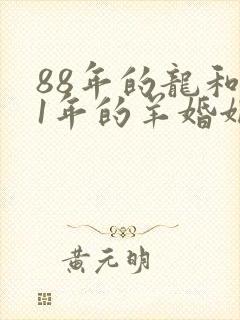 88年的龍和
1年的羊婚姻
黃元明